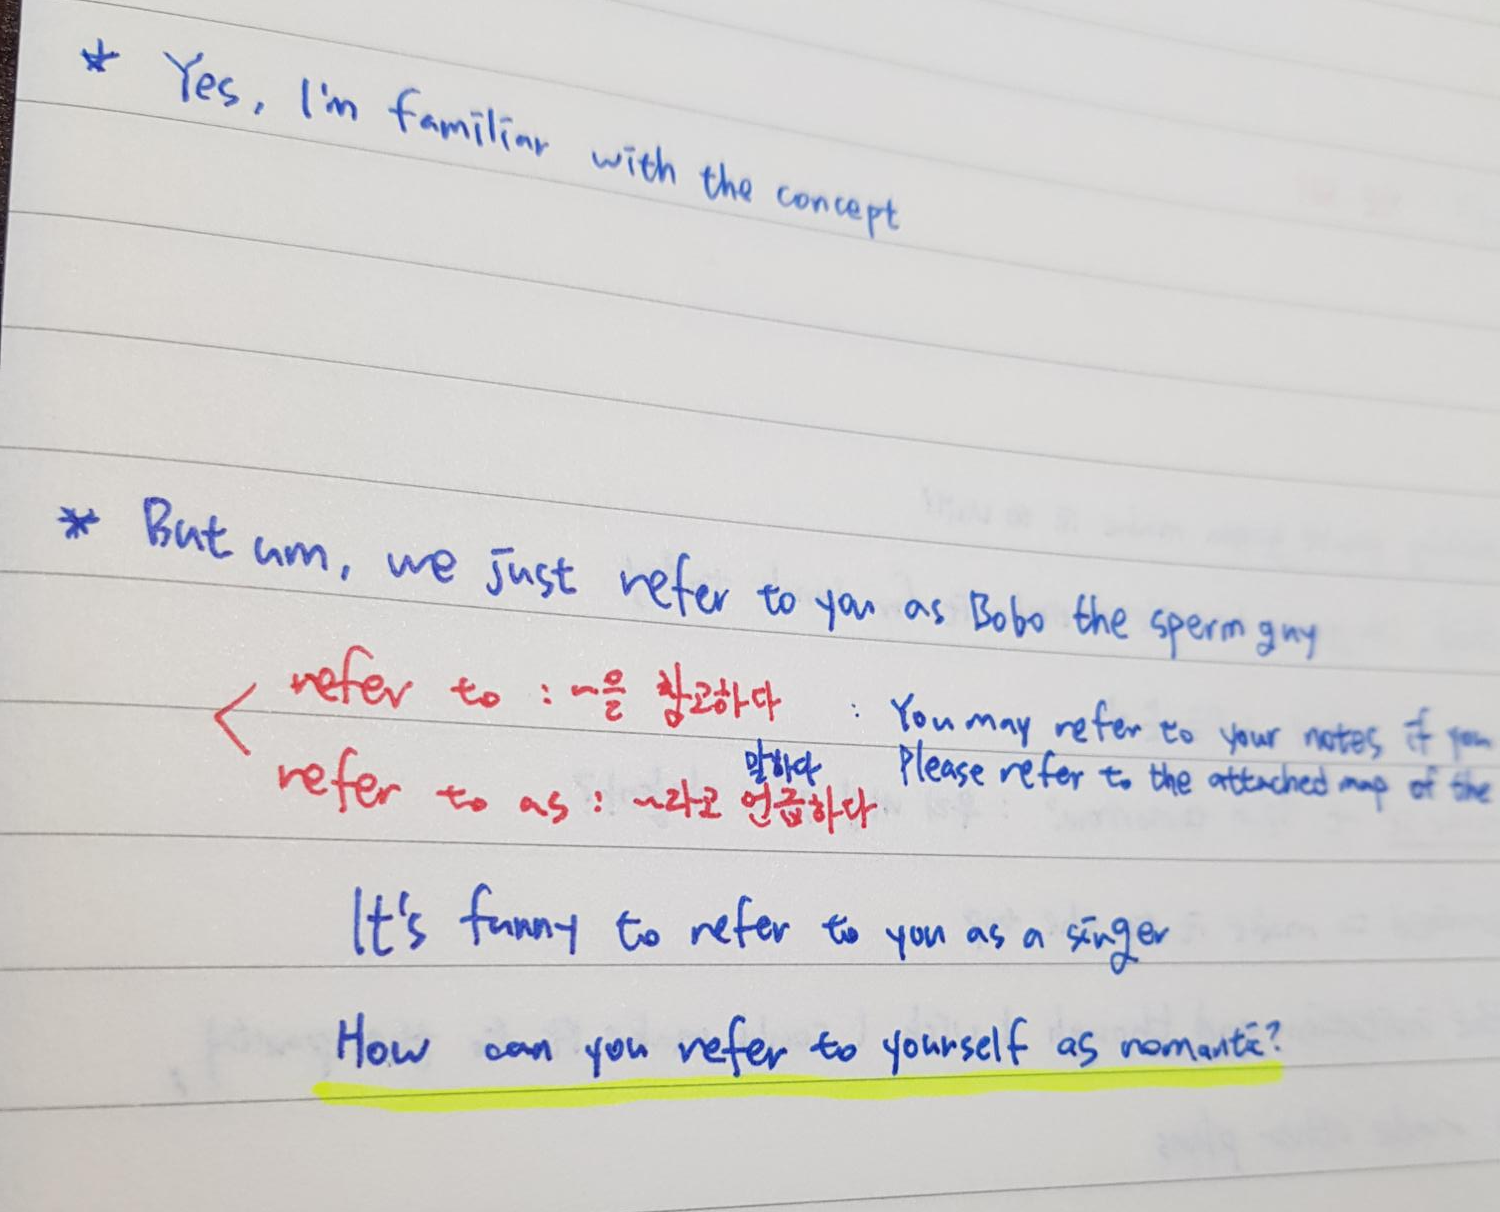 * Yes, I'm familiar with the concept
* But um, we just refer to you as Bobo the sperm guy
refer to : ~을 참고하다 : You may refer to your notes if you
말하다 Please refer to the attached map of the
refer to as : ~라고 언급하다
It's funny to refer to you as a singer
How can you refer to yourself as romantic?